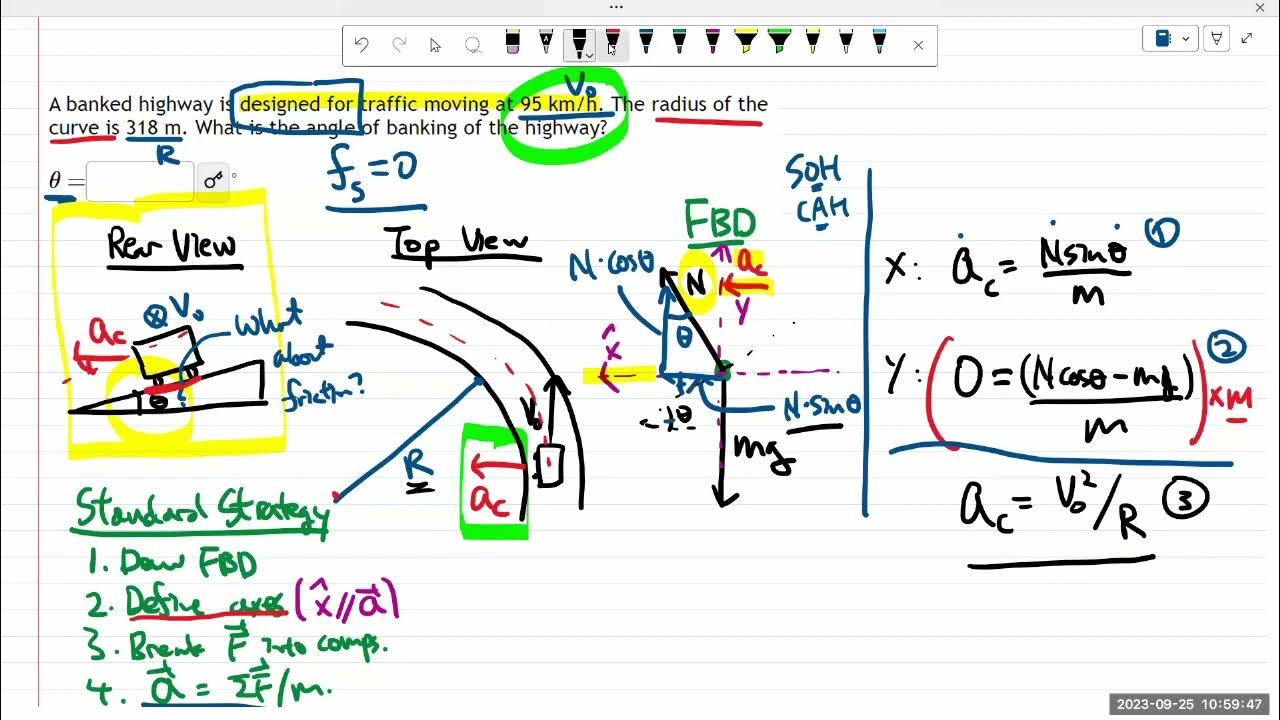 A banked highway is designed for traffic moving at 95 km/h. The radius of the
curve is 318 m. What is the angle of banking of the highway?
V₀
R
θ =
°
fₛ = 0
Rear View
⊗ V₀
ac
What
about
friction?
θ
Top View
R
ac
V₀
SOH
CAH
FBD
N·cosθ
N
ac
y
θ
x̂
N·sinθ
mg
X: ac = Nsinθ/m ①
Y: (0 = (Ncosθ - mg)/m) x m ②
ac = V₀²/R ③
Standard Strategy
1. Draw FBD
2. Define axes (x̂//a⃗)
3. Break F⃗ into comps.
4. a⃗ = ΣF⃗/m.
2023-09-25 10:59:47